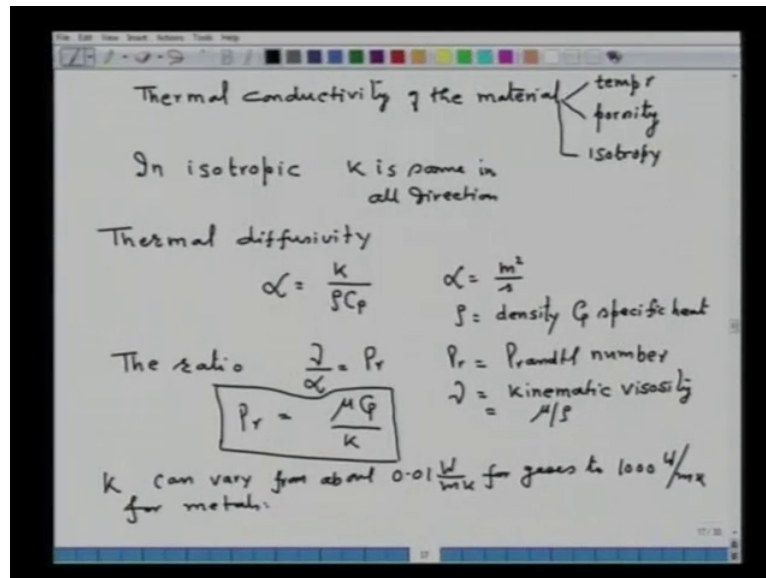 File Edit View Insert Actions Tools Help
Thermal conductivity of the material tempr
porosity
isotropy
In isotropic K is same in
all direction
Thermal diffusivity
α = K / ρCp α = m²/s
ρ = density Cp specific heat
The ratio ν/α = Pr Pr = Prandtl number
ν = kinematic visosity
= μ/ρ
Pr = μCp / K
K can vary from about 0.01 W/mK for gases to 1000 W/mK
for metals.
17